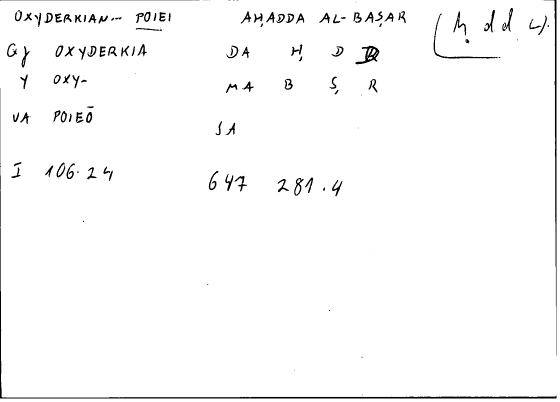 OXYDERKIAN... POIEI AḤADDA AL-BAṢAR (ḥ d d 4)
Gj OXYDERKIA DA Ḥ D
Y OXY- MA B Ṣ R
VA POIEŌ SA
I 106.24 647 281.4